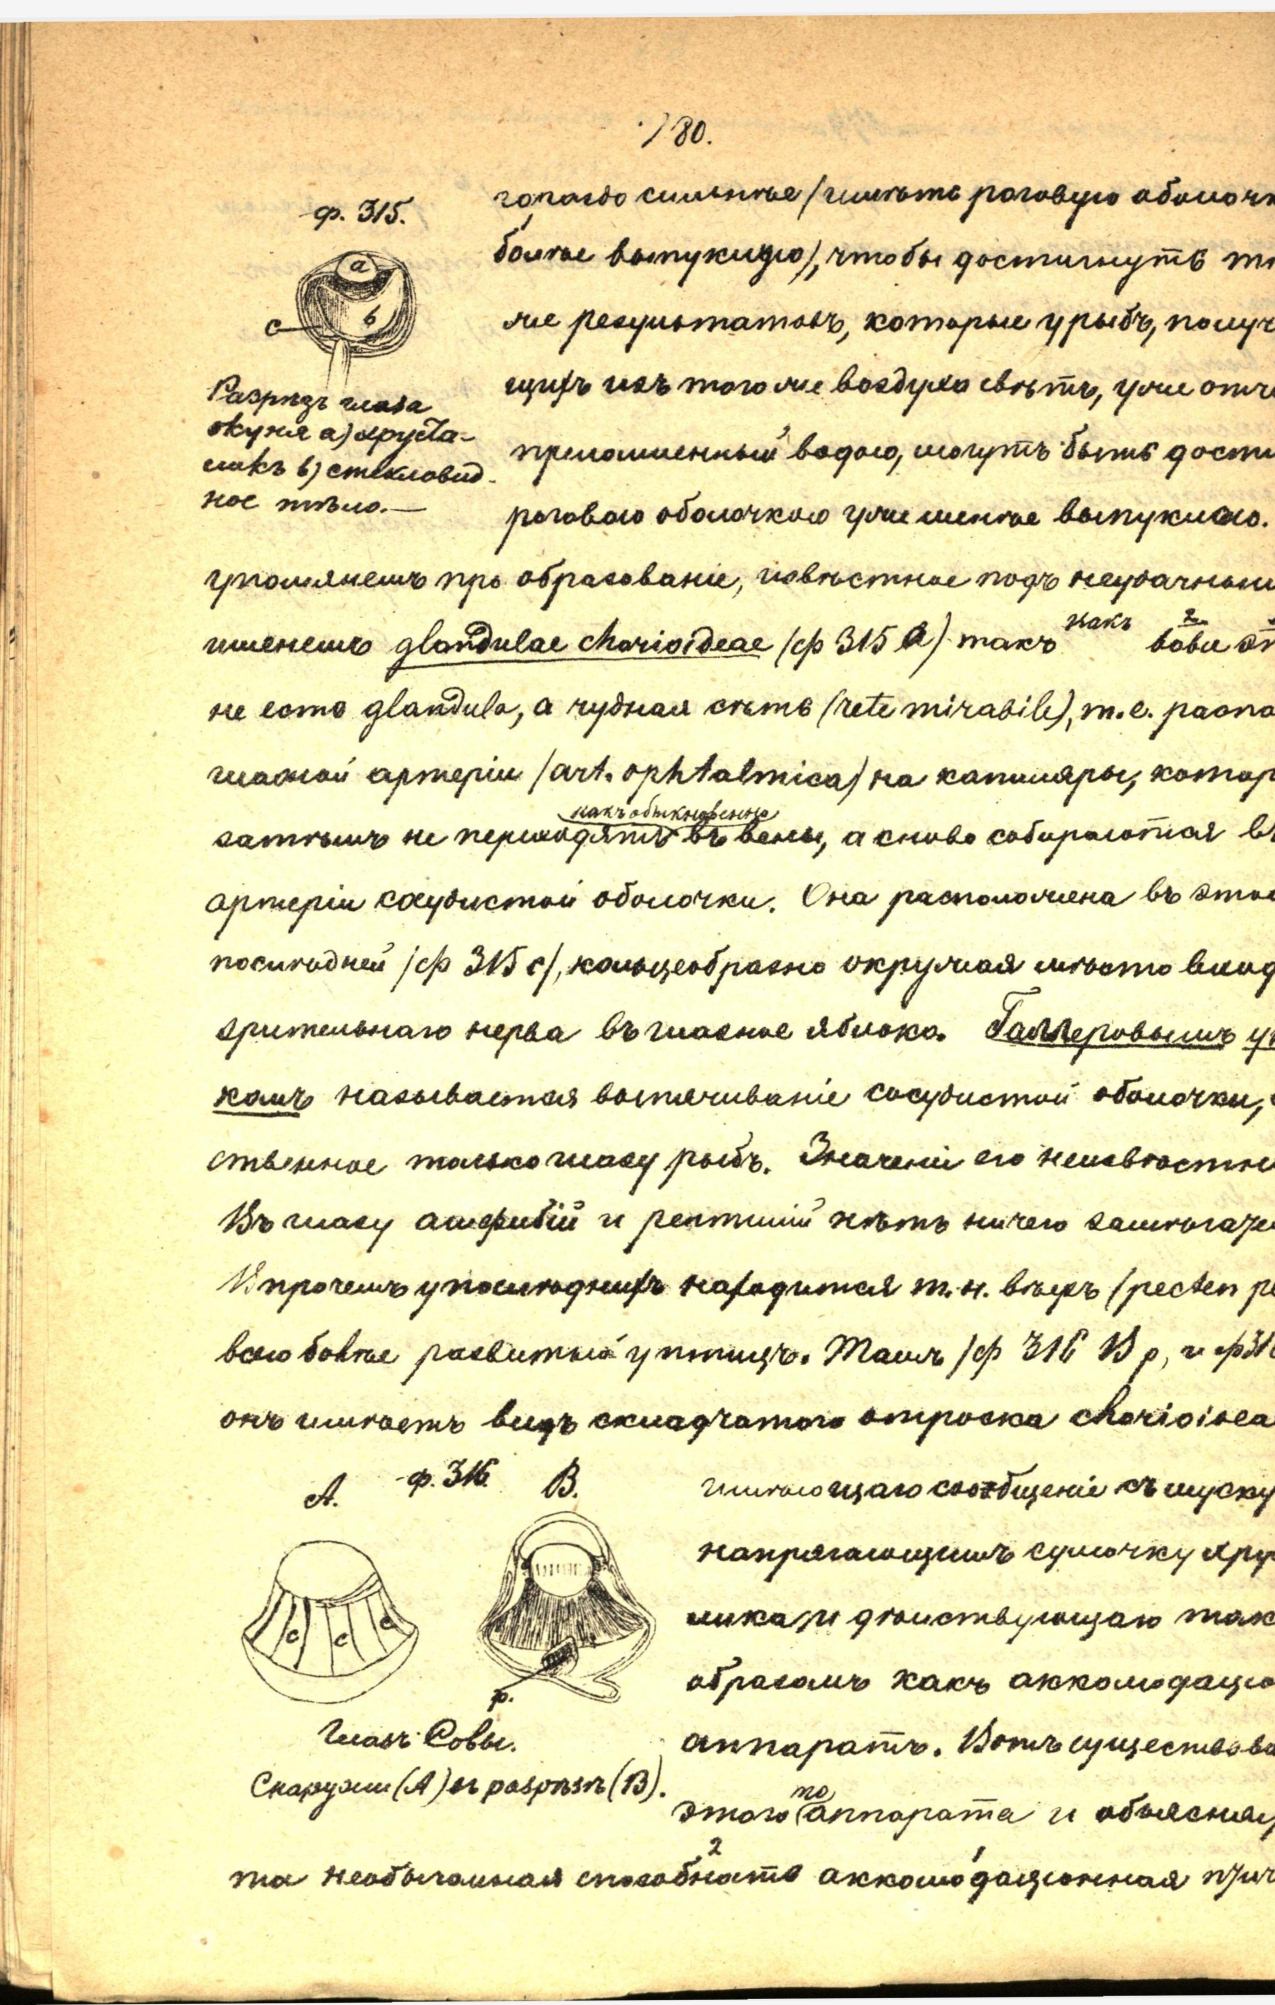 780.
ф. 315.
a
b
c
Разрѣзъ глаза
окуня а) хруста-
ликъ b) стекловид-
ное тѣло.—
гораздо сильнѣе (имѣть роговую оболочк
болѣе выпуклую), чтобы достигнуть т
же результатовъ, которые у рыбъ, получ
щихъ изъ того же воздуха свѣтъ, уже отч
преломленный водою, могутъ быть дости
роговою оболочкою уже менѣе выпуклою.
упомянемъ про образованіе, извѣстное подъ неудачным
именемъ glandulae chorioideae (ф 315 с) такъ какъ
не есть glandula, а чудная сѣть (rete mirabile), т.е. распа
глазной артеріи (art. ophtalmica) на капиляры, котор
какъ обыкновенно
затѣмъ не переходятъ въ вены, а снова собираются въ
артеріи сосудистой оболочки. Она расположена въ этой
послѣдней (ф 315 с), кольцеобразно окружая мѣсто вход
зрительнаго нерва въ глазное яблоко. Галлеровымъ
комъ называется выпячиваніе сосудистой оболочки,
ственное только глазу рыбъ. Значеніе его неизвѣстн
Въ глазу амфибій и рептилій нѣтъ ничего замѣчате
Впрочемъ у послѣднихъ находится т.н. вѣеръ (pecten
всего болѣе развитый у птицъ. Тамъ (ф 316 В р, и ф 316
онъ имѣетъ видъ складчатого отростка chorioidea
А. ф. 316. В.
c c c
р.
Глазъ Совы.
Снаружи (А) въ разрѣзѣ (В).
имѣющаго сообщеніе съ муску
напрягающимъ сумочку хру
лика, и дѣйствующаго так
образомъ какъ аккомодацio
аппаратъ. Вотъ существова
этого то аппарата и объясня
та необычайная способность 2 аккомодаціонная 1